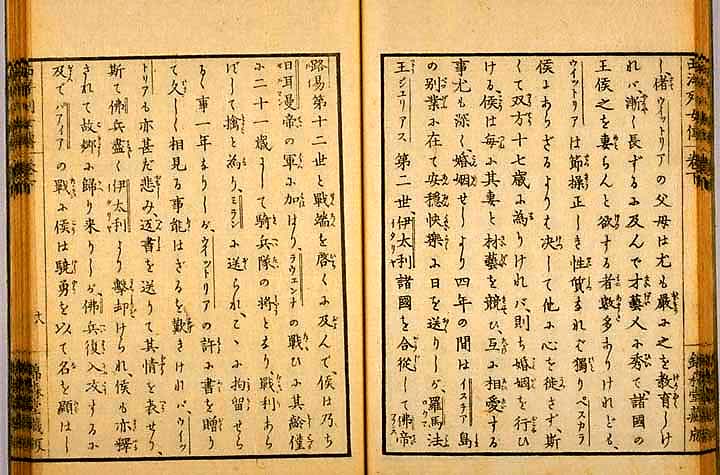 し、偖ウィットリアの父母は尤も嚴に之を教育しけ
れバ、漸く長ずるに及んで才藝人に秀で諸國の
王侯之を妻らんと欲する者數多ありけれども、
ウィットリアは節操正しき性質なれバ獨りペスカラ
侯にあらざるよりは決して他に心を徙さず、斯
くて双方十七歳に為りけれバ、則ち婚姻を行ひ
ける、侯は毎に其妻と材藝を競ひ、互に相愛する
事尤も深く、婚姻せしより四年の間はイスチア島
の別業に在て安穏快樂に日を送りしが、羅馬法
王ジュリアス第二世伊太利諸國を合從して佛帝
路易第十二世と戰端を啓くに及んで、侯は乃ち
日耳曼帝の軍に加はり、ラウェンナの戰ひに其齡僅
に二十一歳にして騎兵隊の將となり、戰利あら
ずして擒と為り、ミランに送られ、こゝに拘留せら
るゝ事一年なりしが、ウィットリアの許に書を贈り
て久しく相見る事能はざるを歎きけれバ、ウィッ
トリアも亦甚だ悲み、返書を送りて其情を表せり、
斯て佛兵盡く伊太利より擊却けられ、侯も亦釋
されて故郷に歸り来りしが、佛兵復入冦するに
及でパアイアの戰に侯は驍勇を以て名を顯はし